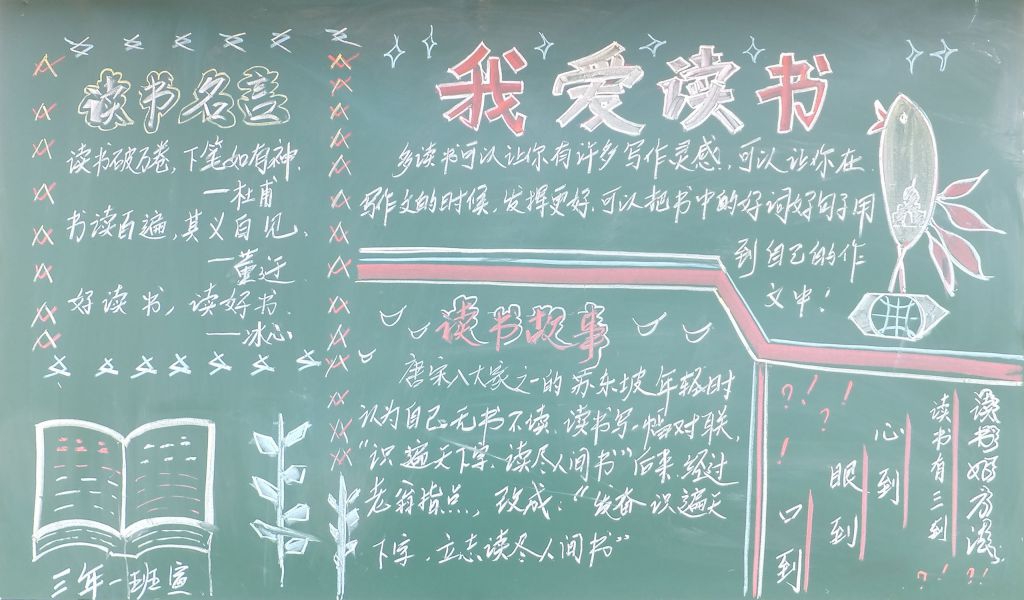 读书名言
读书破万卷,下笔如有神.
—杜甫
书读百遍,其义自见、
—董迂
好读书,读好书.
—冰心
三年一班宣
我爱读书
多读书可以让你有许多写作灵感.可以让你在
写作文的时候,发挥更好.可以把书中的好词好句子用
到自己的作
文中!
读书故事
唐宋八大家之一的苏东坡年轻时
认为自己无书不读.读书写一幅对联,
"识遍天下字.读尽人间书"后来.经过
老翁指点,改成:"发奋识遍天
下字,立志读尽人间书"
读书好方法
读书有三到
心到
眼到
口到